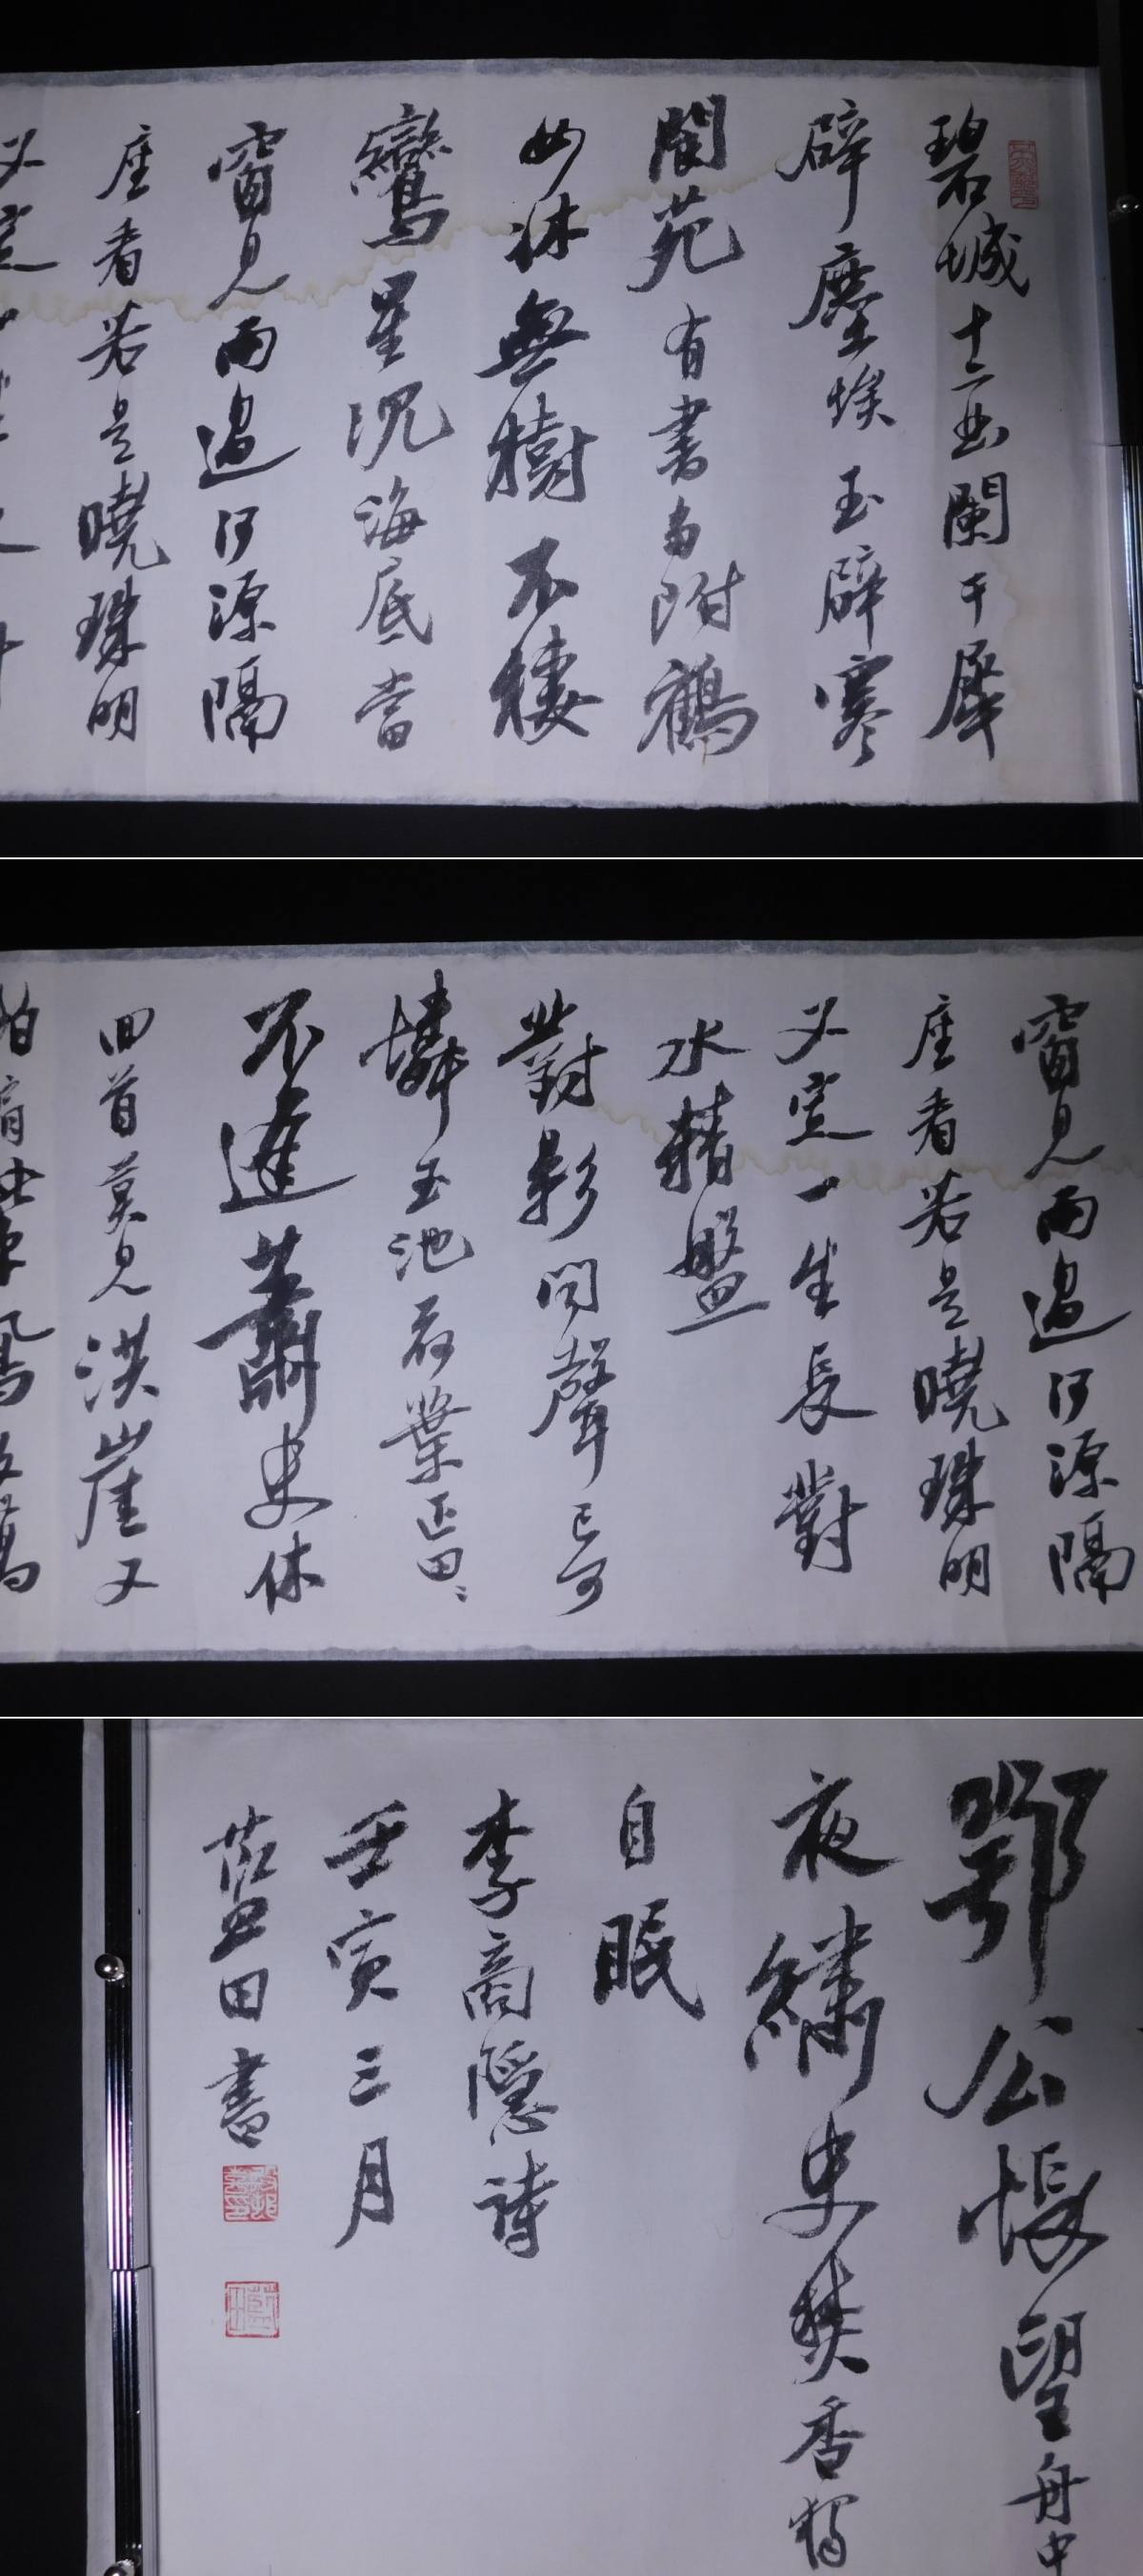 碧城十二曲闌干犀
辟塵埃玉辟寒
閬苑有書多附鶴
女牀無樹不棲
鸞星沉海底當
窗見雨過河源隔
座看若是曉珠明
又定
窗見雨過河源隔
座看若是曉珠明
又定一生長對
水精盤
對影聞聲已可
憐玉池荷葉正田〻
不逢蕭史休
回首莫見洪崖又
拍肩
鄂公悵望舟中
夜繡史焚香獨
自眠
李商隱詩
壬寅三月
藍田書